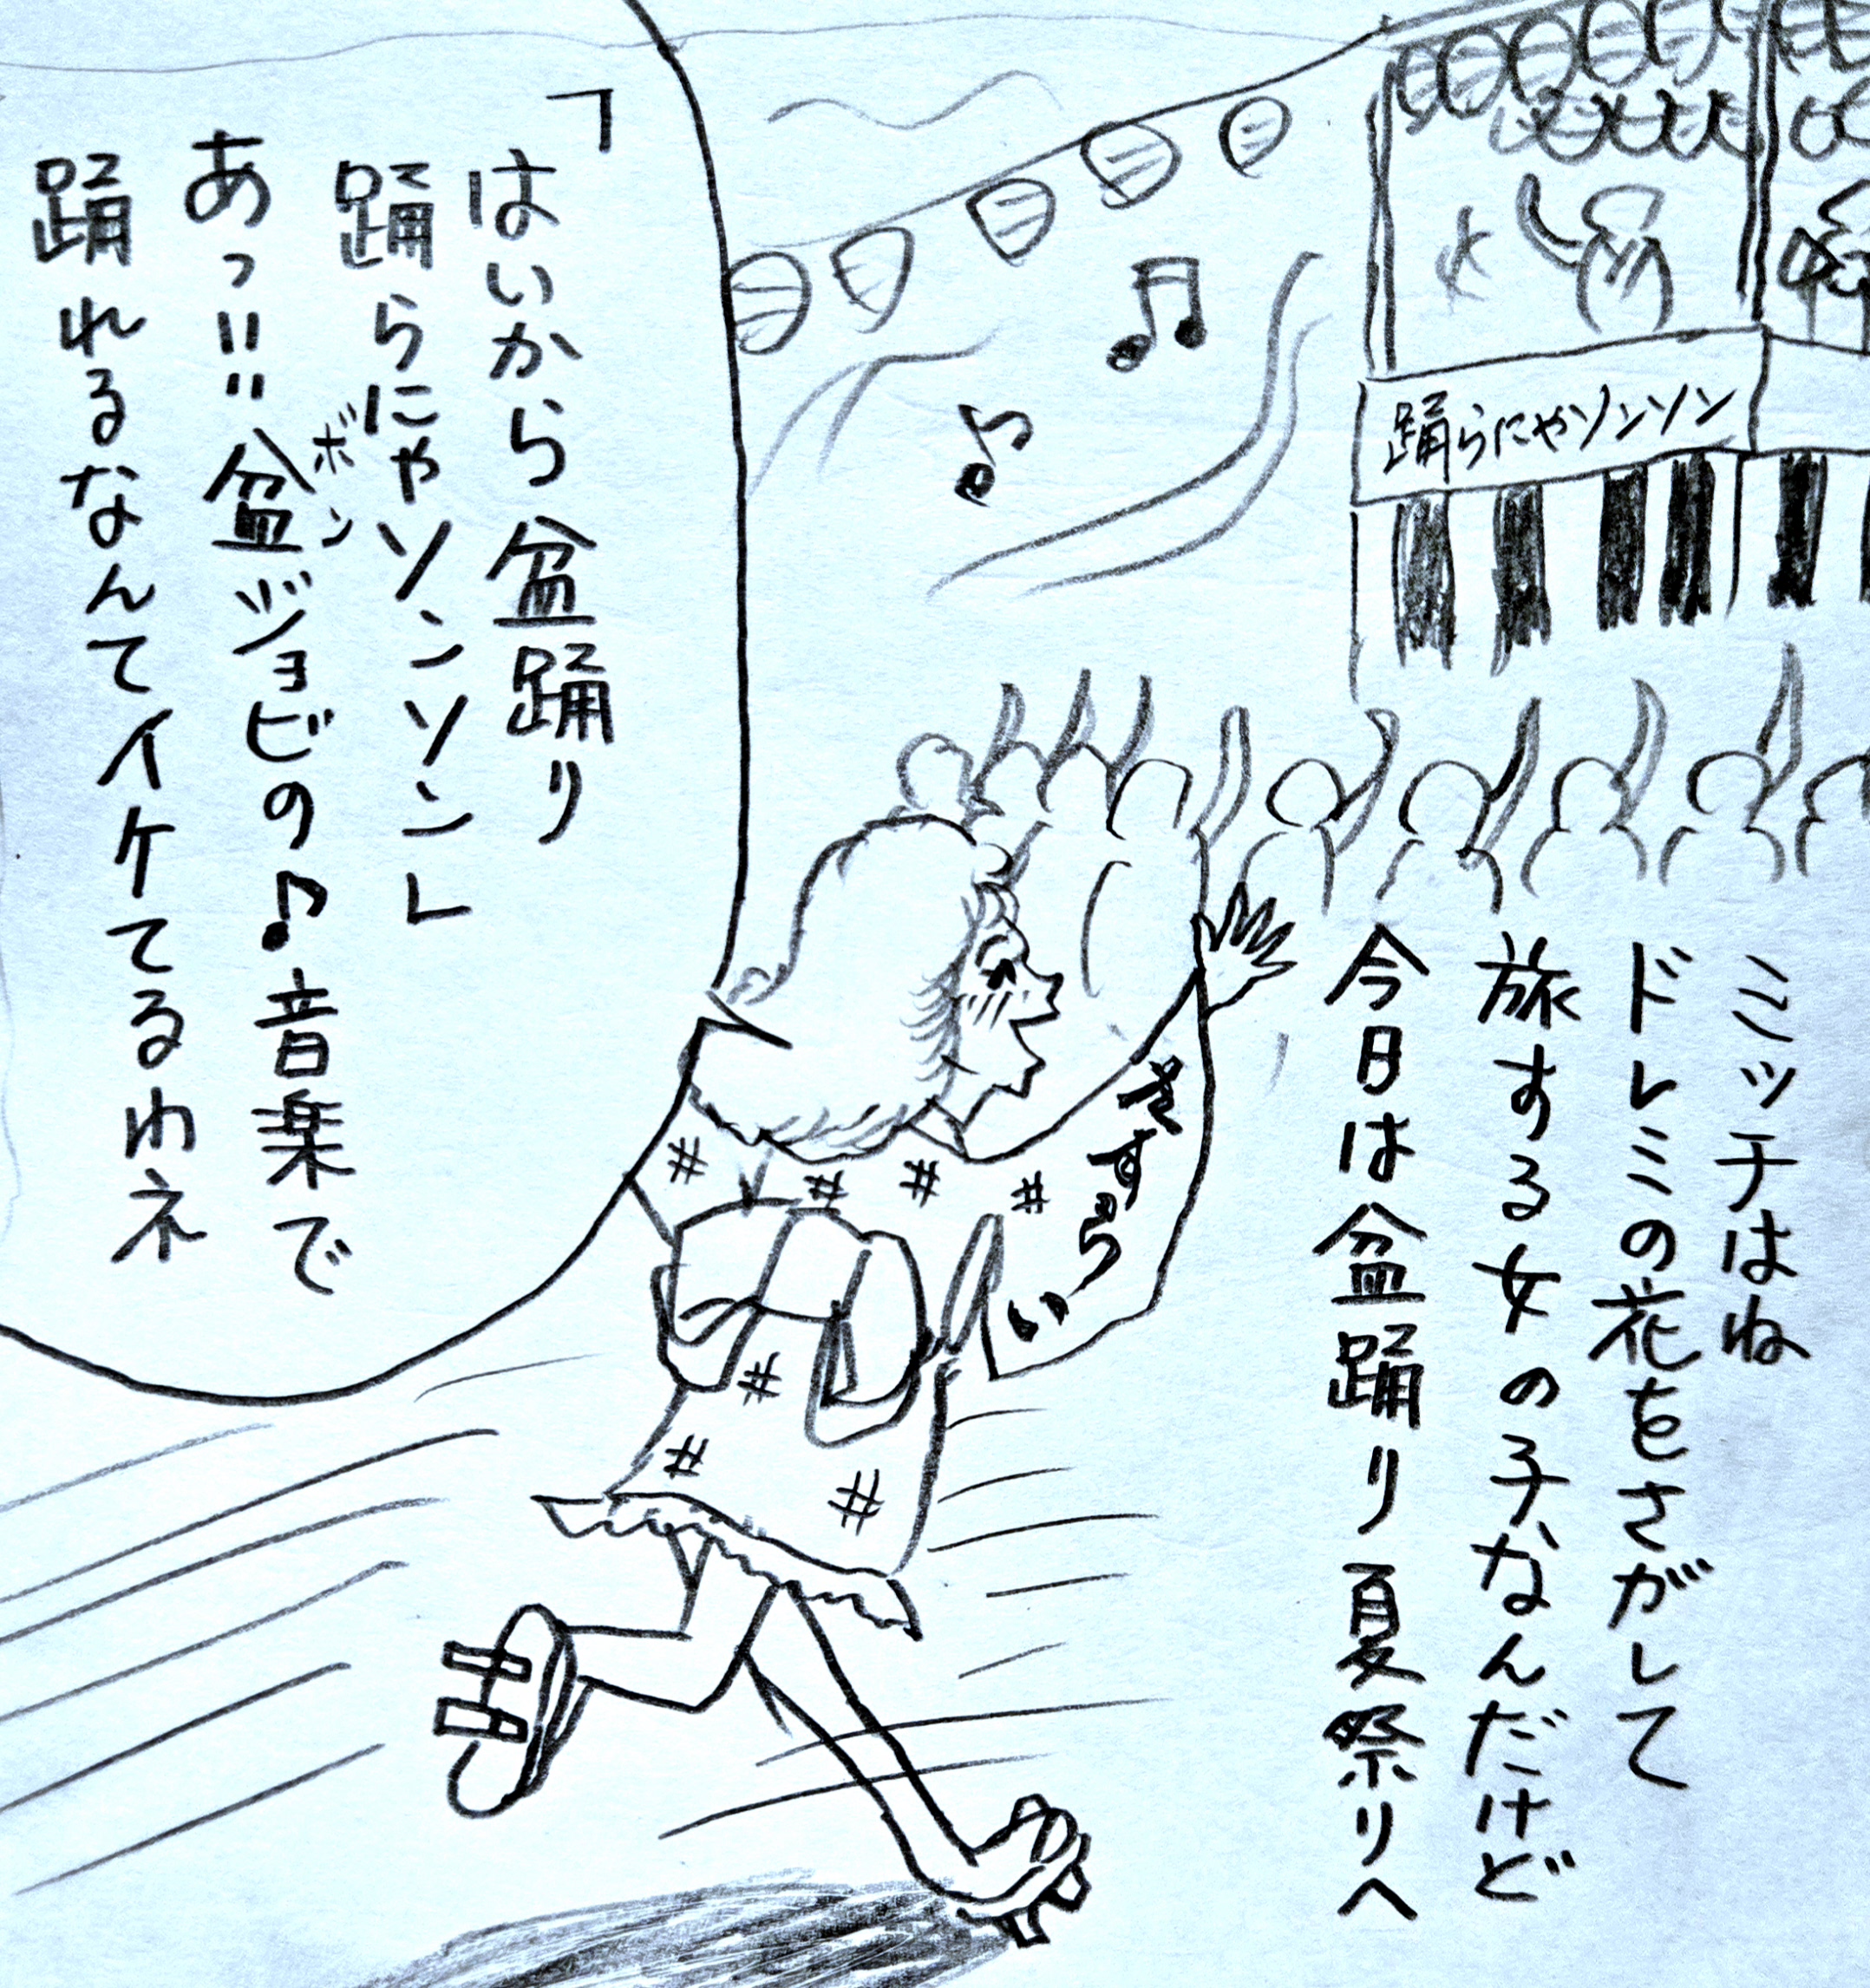 踊らにゃソンソン
ミッチはね
ドレミの花をさがして
旅する女の子なんだけど
今日は盆踊り夏祭りへ
「はいから盆踊り
踊らにゃソンソン」
あっ!!盆ジョビの♪音楽で
ボン
踊れるなんてイケてるわネ
きすらい